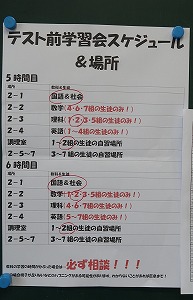 テスト前学習会スケジュール
&場所
5時間目
場所 教科&生徒
2-1 国語&社会
2-2 数学(4・6・7組の生徒のみ！)
2-3 理科(1・2・3・5組の生徒のみ！)
2-4 英語(1～4組の生徒のみ！)
調理室 1～2組の生徒の自習場所
2-5～7 3～7組の生徒の自習場所
6時間目
2-1 国語&社会
2-2 数学(1・2・3・5組の生徒のみ！)
2-3 理科(4・6・7組の生徒のみ！)
2-4 英語(5～7組の生徒のみ！)
調理室 1～2組の生徒の自習場所
2-5～7 3～7組の生徒の自習場所
必ず相談！！！